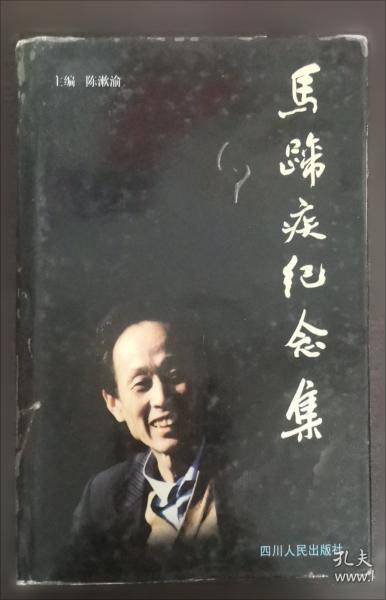 主编 陈漱渝
馬蹄疾纪念集
四川人民出版社
孔夫